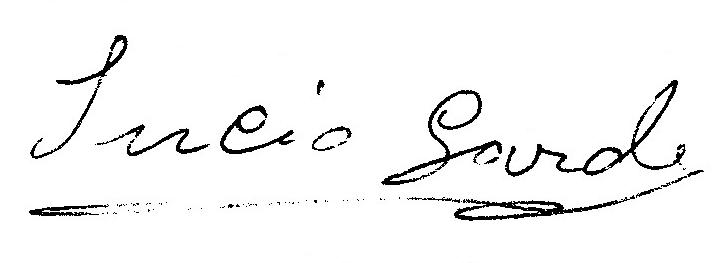 Lucio Sarde